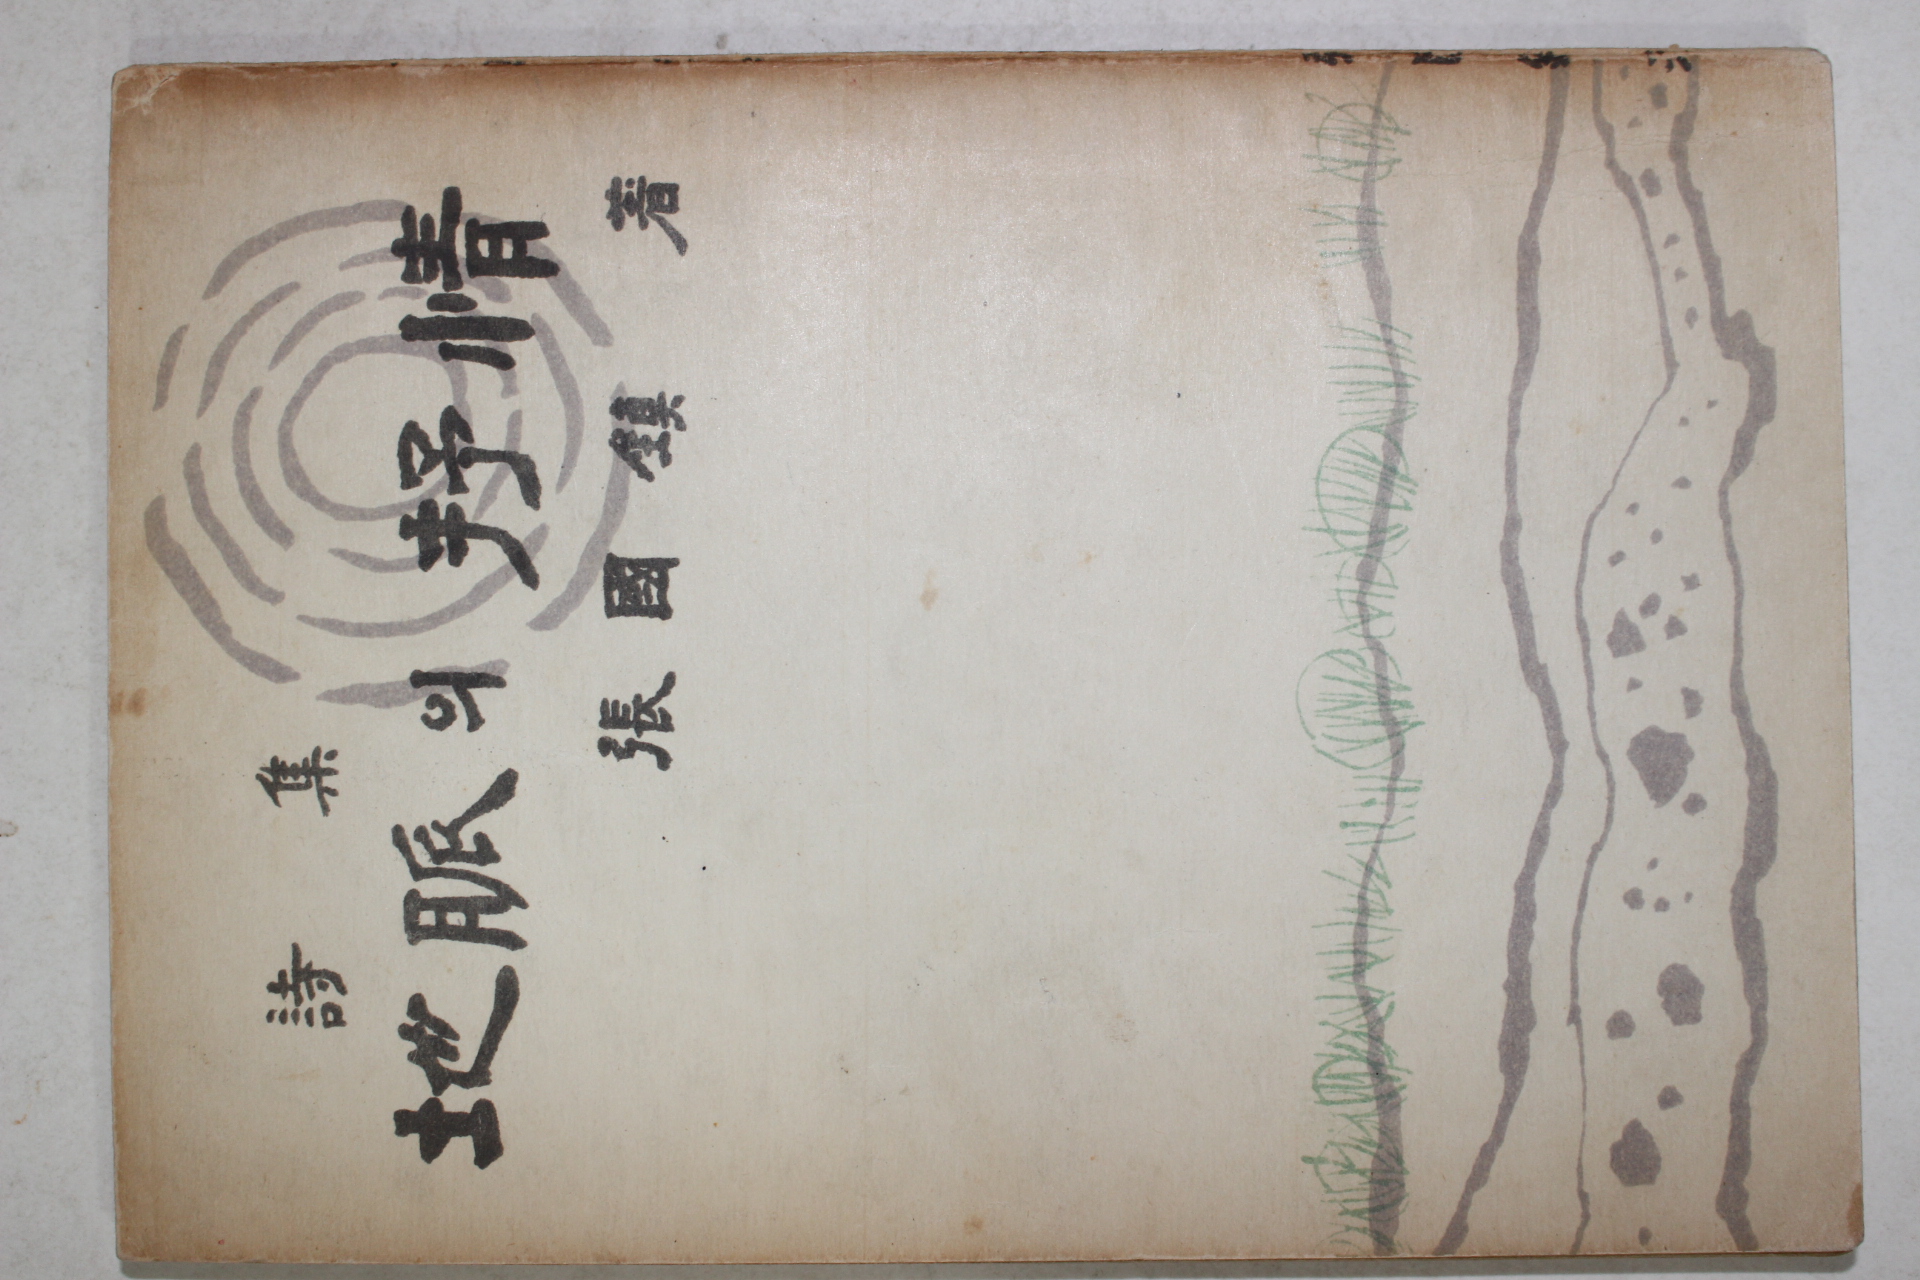 詩集
地脈의 抒情
張國鎭 著